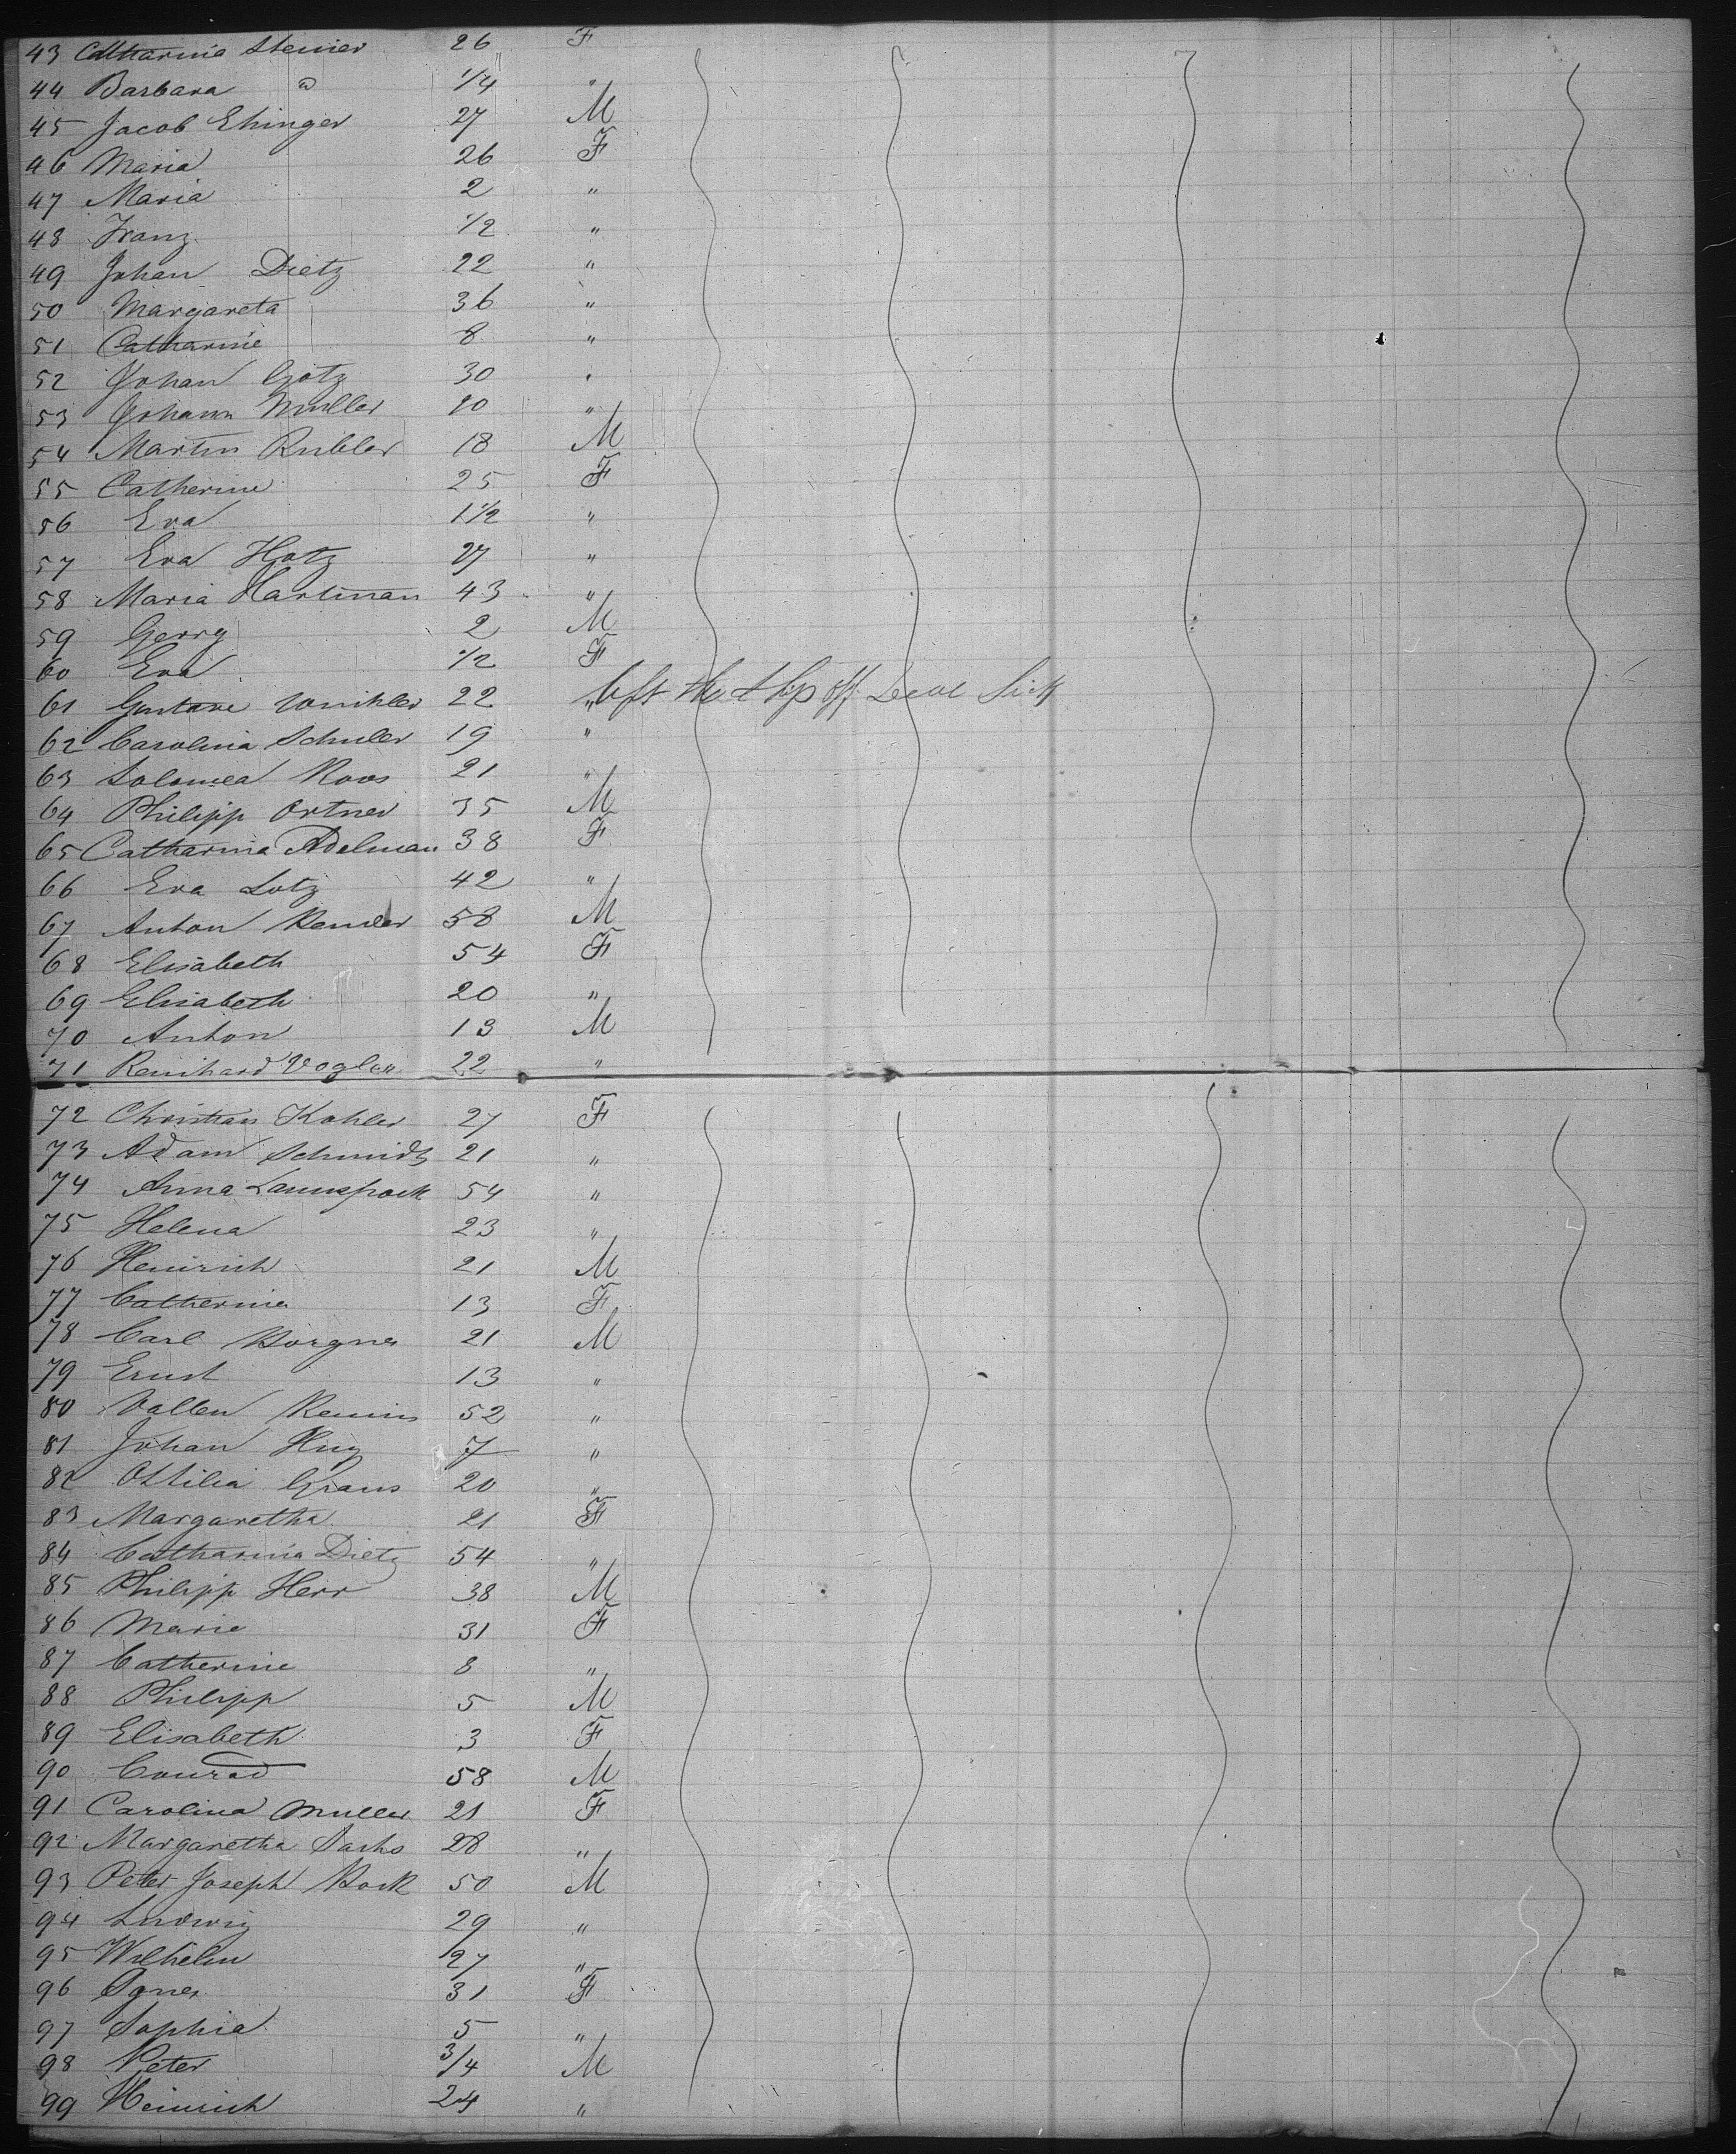 43 Catharina Steiner 26 F
44 Barbara do 1/4 "
45 Jacob Ehinger 27 M
46 Maria 26 F
47 Maria 2 "
48 Franz 1/2 "
49 Johan Dietz 22 "
50 Margareta 36 "
51 Catharine 8 "
52 Johan Götz 30 "
53 Johann Muller 20 "
54 Martin Rubler 18 M
55 Catherine 25 F
56 Eva 1 1/2 "
57 Eva Hotz 27 "
58 Maria Hartman 43 "
59 Georg 2 M
60 Eva 1/2 F
61 Gustave Winkler 22 " left the ship off Deal sick
62 Carolina Schuler 19 "
63 Salomea Roos 21 "
64 Philipp Ortner 35 M
65 Catharina Adelman 38 F
66 Eva Lotz 42 "
67 Anton 58 M
68 Elisabeth 54 F
69 Elisabeth 20 "
70 Anton 13 M
71 Reinhard Vogler 22 "
72 Christian Kohler 27 F
73 Adam Schmidt 21 "
74 Anna 54 "
75 Helena 23 "
76 Heinrich 21 M
77 Catherina 13 F
78 Carl 21 M
79 Ernst 13 "
80 52 "
81 Johan Hug 7 "
82 Ottilia Graus 20 "
83 Margaretha 21 F
84 Catharina Dietz 54 "
85 Philipp Herr 38 M
86 Marie 31 F
87 Catherine 8 "
88 Philipp 5 M
89 Elisabeth 3 F
90 Conrad 58 M
91 Carolina Muller 21 F
92 Margaretha Sachs 28 "
93 Peter Joseph Hock 50 M
94 Ludwig 29 "
95 Wilhelm 27 "
96 Agnes 31 F
97 Sophia 5 "
98 Peter 3/4 M
99 Heinrich 24 "